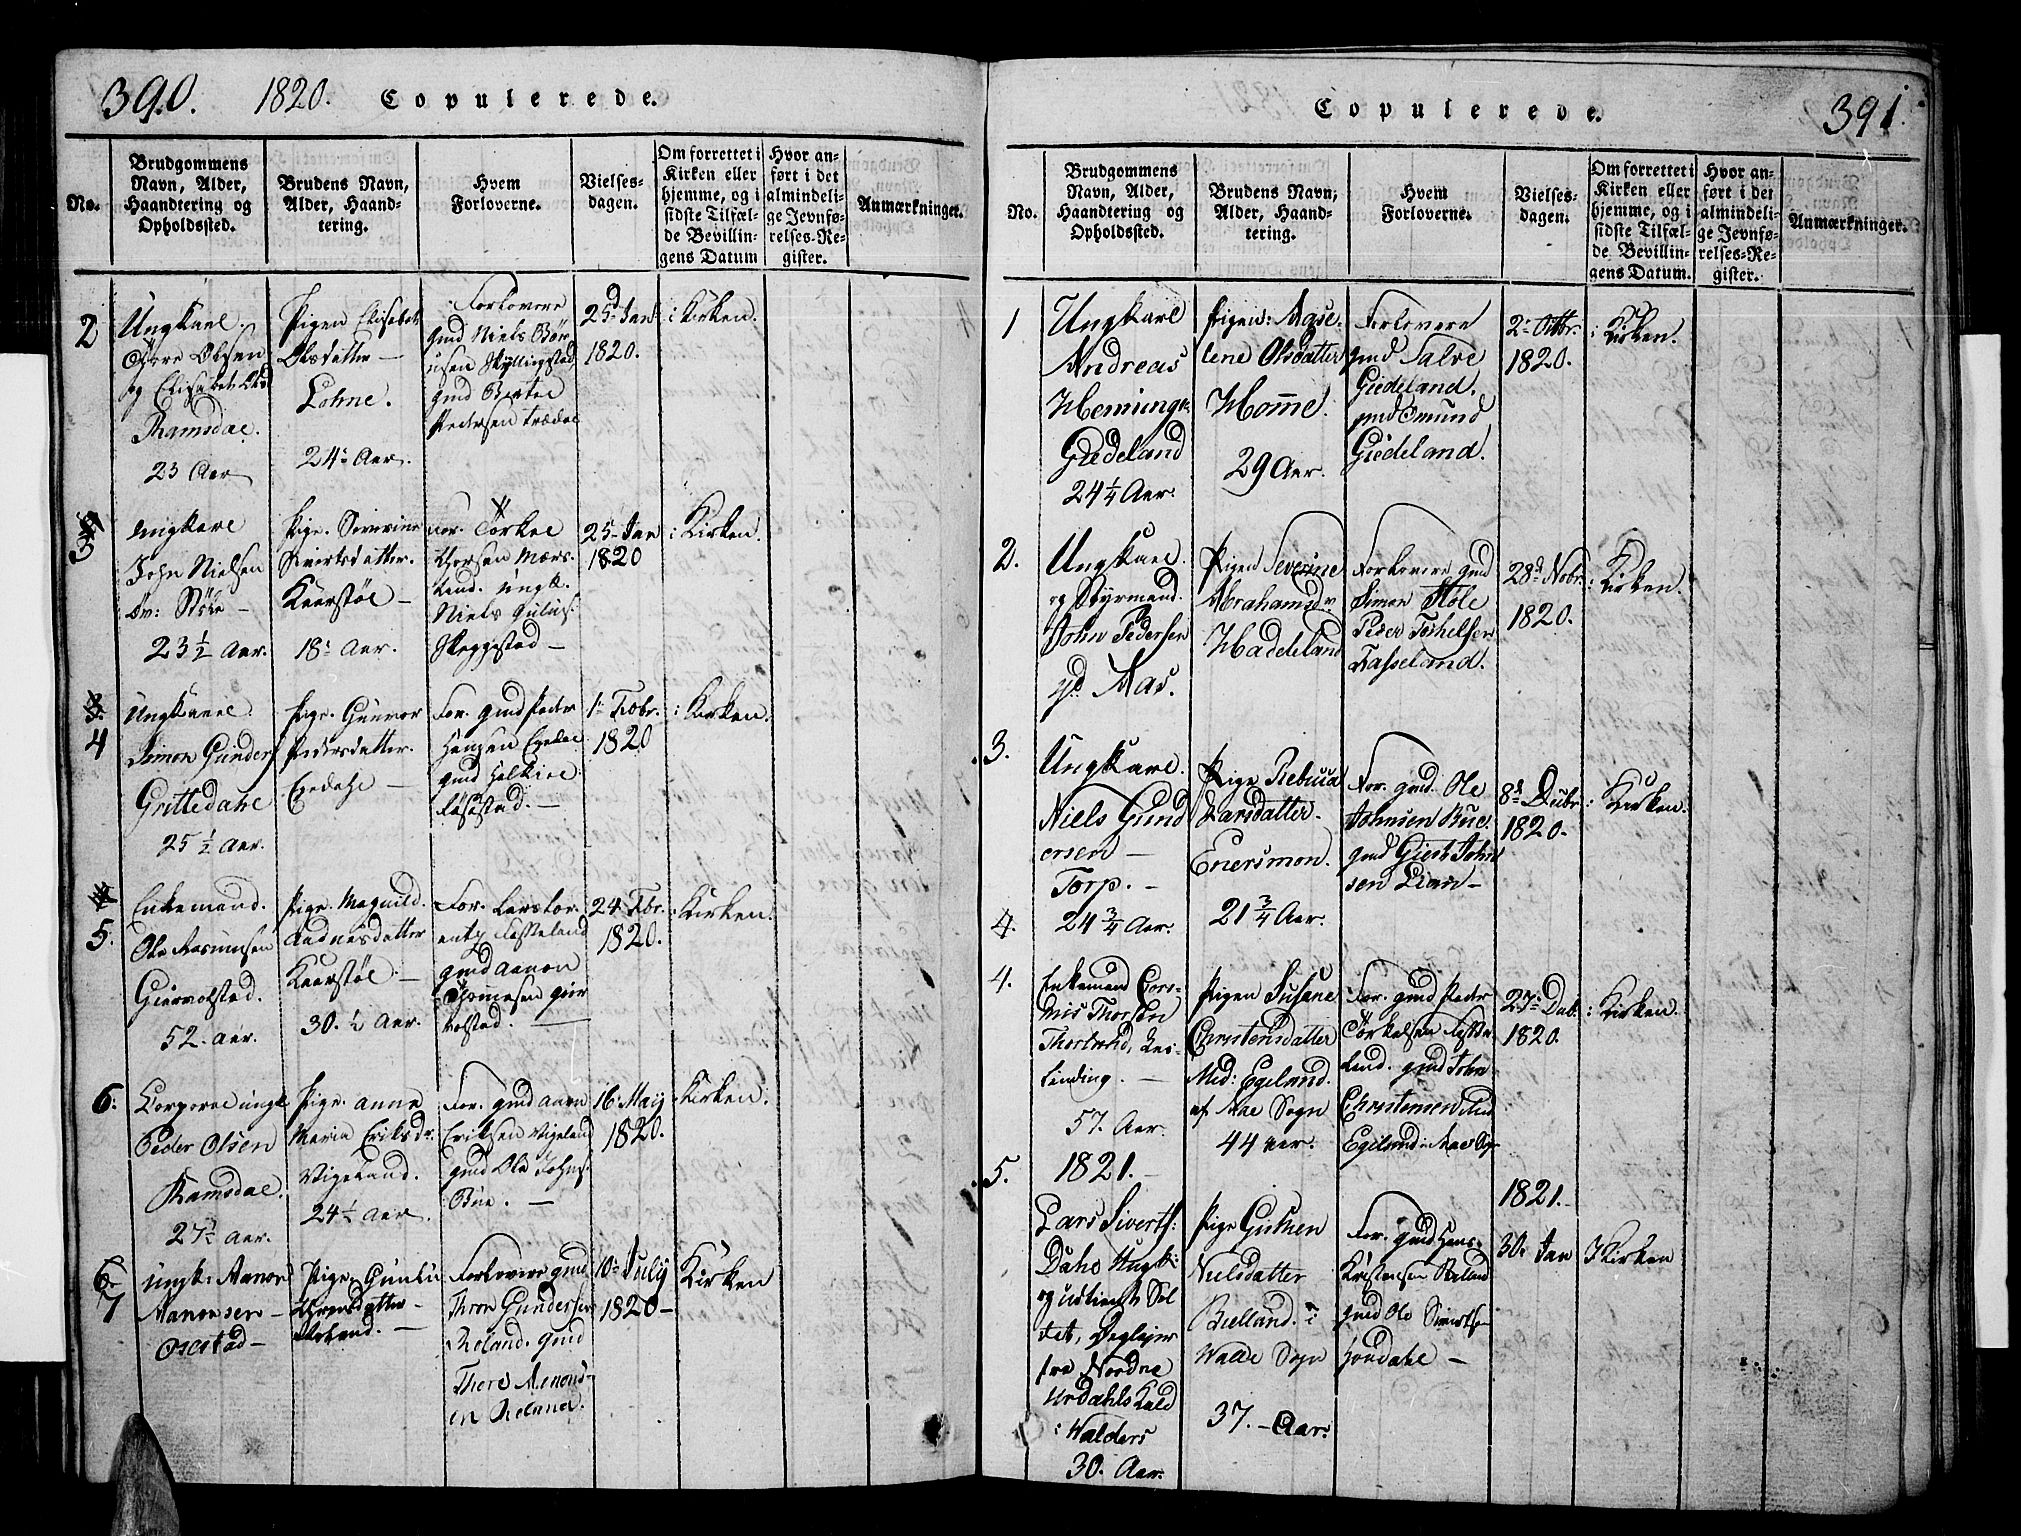 390. 1820. Copulerede.
No.
Brudgommens
Navn, Alder,
Haandtering og
Opholdssted.
Brudens Navn,
Alder, Haand-
tering.
Hvem
Forloverne.
Vielses-
dagen.
Om forrettet i
Kirken eller
hjemme, og i
sidste Tilfæl-
de Bevillin-
gens Datum
Hvor an-
ført i det
almindeli-
ge Jevnfø-
relses-Re-
gister.
Anmærkninger.
2
Ungkarl
Tørre Olsen
og Elisabeth
Ramsdal.
23 Aar
Pigen Elisabeth
Olsdatter —
Lohne.
24 Aar.
Forlovere
gmd Niels Bør
usen Skyllingstad
gmd Bertel
Pedersen
25d Jan
1820.
i Kirken.
3
Ungkarl
John Nielsen
Støle —
23 1/2 Aar.
Pige. Severine
Sivertsdatter.
Kaarstøl —
18 Aar.
For. Tørkel
Thorsen
land. Ungk.
Niels
Skeggestad —
25 Jan
1820
i Kirken.
4
Ungkarl.
Simon Gunders
Grittedahl
25 1/2 Aar.
Pige. Gunvor
Pedersdatter.
—
For. gmd Peder
Hansen
gmd
1 Febr.
1820
i Kirken.
5.
Enkemand.
Ole Rasmusen
Giermolstad.
52. Aar.
Pige. Magnild.
Aadnesdatter
Kaarstøl. —
30. 1/2 Aar.
For.
Fasseland
gmd Aanon
Thommesen
24 Fbr.
1820.
i Kirken.
6.
Corporal ungk
Peder Olsen
Ramsdal.
27 1/2 Aar.
Pige. Anne
Maria Eriksdr.
Vigeland.
24 1/2 Aar.
For. gmd Aavn
Eriksen Vigeland
gmd Ole Johns.
Bue. —
16. Maij
1820.
i Kirken.
7
Ungk: Aanon
Aanonsen —
Osestad —
Pige. Gunlu
Thronsdatter —
Røland. —
Forlovere gmd
Thron Gundersen
Røland. gmd
Thore Amond-
en Røland.
10. July
1820 —
Kirken
Copulerede. 391.
No.
Brudgommens
Navn, Alder,
Haandtering og
Opholdssted.
Brudens Navn,
Alder, Haand-
tering.
Hvem
Forloverne.
Vielses-
dagen.
Om forrettet i
Kirken eller
hjemme, og i
sidste Tilfæl-
de Bevillin-
gens Datum.
Hvor an-
ført i det
almindeli-
ge Jevnfø-
relses-Re-
gister.
Anmærkninger.
1
Ungkarl
Andreas
Henning
Giedeland
24 1/4 Aar.
Pigen: Mase-
lene Olsdatter
Homme.
29 Aar.
Forlovere
gmd Salve
Giedeland.
gmd Omund
Giedeland.
2. Octbr.
1820.
i Kirken.
2.
Ungkarl
og Styrmand.
John Pedersen
yd Aas.
Pigen Severine
Abrahamsdr
Haddeland
Forlovere gmd
Simon Støle
Peder Torkelsen
Fasseland.
28d Nobr.
1820.
i Kirken.
3.
Ungkarl
Niels Gund
ersen —
Torp. —
24 3/4 Aar.
Pige Rebecca
Larsdatter.
Enersmon.
21 3/4 Aar.
For. gmd. Ole
Johnsen Bue.
gmd Giest John
sen Lian —
8d Decbr.
1820.
i Kirken.
4.
4.
Enkemand Cors-
nis Thorsen
Thorland,
57. Aar.
Pigen Susane
Christensdatter
Med: Egeland.
af Aae Sogn
44 Aar.
For. gmd Peder
Tørkelsen Fasse
land. gmd John
Christensen Med
Egeland i Aae Sogn
27. Decb.
1820.
i Kirken.
5.
1821.
Lars Siverts:
Daho Ungk:
og udtient Sol
dat,
fra Nordre
Urdahls Kald
i Walders
30. Aar.
Pige Guthen
Nielsdatter
Bielland. i
Walle Sogn
37. — Aar.
For. gmd Hans
Kristensen
gmd Ole Sivertsen
Hondahl —
1821.
30. Jan
I Kirken